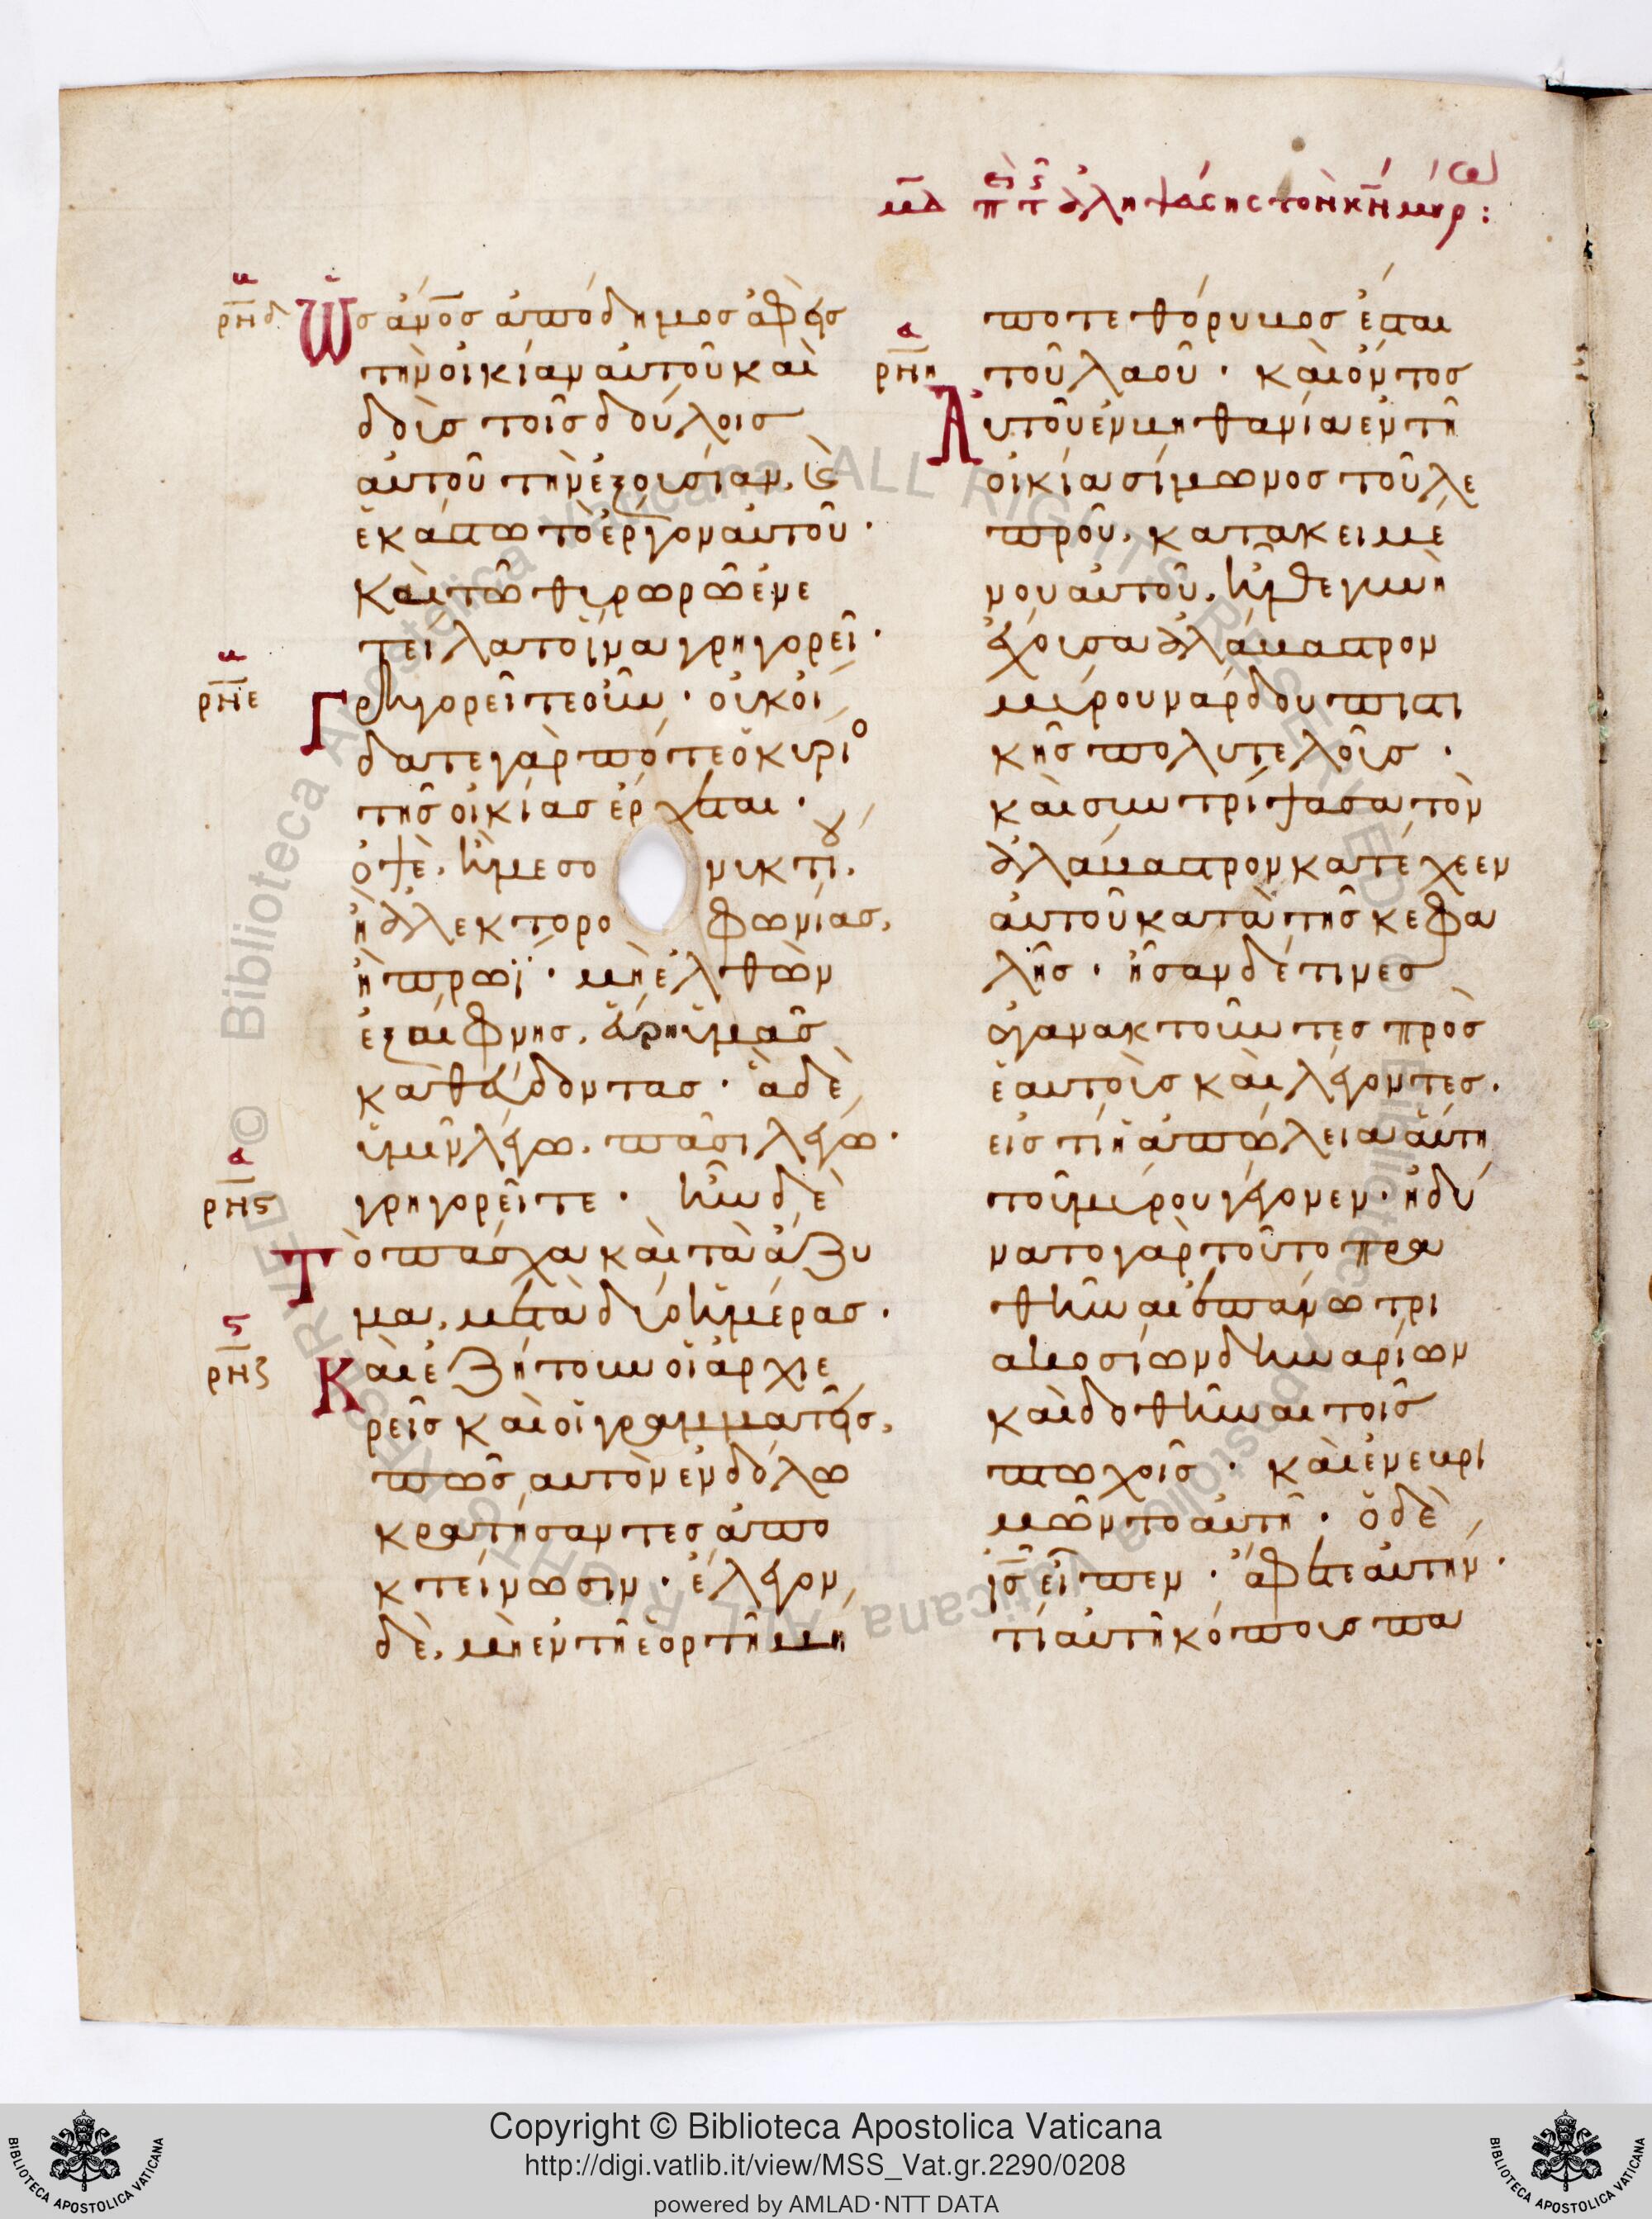 μδ περὶ τῆς ἀλειψάσης τὸν κν μύρω:
ρϟδ
Ὡσ ἀνοσ ἀπόδημοσ ἀφεὶσ
τὴν οἰκίαν αὐτοῦ καὶ
δοὺσ τοῖσ δούλοισ
αὐτοῦ τὴν ἐξουσίαν, καὶ
ἑκάστω τὸ ἔργον αὐτοῦ·
Καὶ τῶ θυρωρῶ ἐνε
τείλατο ἵνα γρηγορεῖ·
ρϟε
Γρηγορεῖτε οὖν· οὐκ οἴ
δατε γὰρ πότε ὁ κύριο
τῆσ οἰκίασ ἔρχεται·
ὀψὲ, ἢ μεσονυκτίου,
ἢ ἀλεκτοροφωνίασ,
ἢ πρωῒ· μὴ ἐλθὼν
ἐξαίφνησ, εὕρη ὑμᾶσ
καθεύδοντασ· ἃ δὲ
ὑμῖν λέγω, πᾶσι λέγω·
ρϟς
γρηγορεῖτε· ἦν δὲ
Τὸ πάσχα καὶ τὰ ἄζυ
μα, μετὰ δύο ἡμέρασ·
ρϟζ
Καὶ ἐζήτουν οἱ ἀρχιε
ρεῖσ καὶ οἱ γραμματεῖσ,
πῶσ αὐτὸν ἐν δόλω
κρατήσαντεσ ἀπο
κτείνωσιν· ἔλεγον
δὲ, μὴ ἐν τῆ ἑορτῆ μή
ποτε θόρυβοσ ἔσται
ρϟη
τοῦ λαοῦ· καὶ ὄντοσ
Αὐτοῦ ἐν βηθανία ἐν τῆ
οἰκία σίμωνοσ τοῦ λε
προῦ, κατακειμέ
νου αὐτοῦ, ἦλθε γυνὴ
ἔχουσα ἀλάβαστρον
μύρου νάρδου πιστι
κῆσ πολυτελοῦσ·
καὶ συντρίψασα τὸν
ἀλάβαστρον κατέχεεν
αὐτοῦ κατὰ τῆσ κεφα
λῆσ· ἦσαν δέ τινεσ
ἀγανακτοῦντεσ πρὸσ
ἑαυτοὺσ καὶ λέγοντεσ·
εἰσ τί ἡ ἀπώλεια αὕτη
τοῦ μύρου γέγονεν· ἠδύ
νατο γὰρ τοῦτο πρα
θῆναι ἐπάνω τρι
ακοσίων δηναρίων
καὶ δοθῆναι τοῖσ
πτωχοῖσ· καὶ ἐνεβρι
μῶντο αὐτῆ· ὁ δὲ
ἰσ εἶπεν· ἄφετε αὐτήν·
τί αὐτῆ κόπουσ πα
Copyright © Biblioteca Apostolica Vaticana
http://digi.vatlib.it/view/MSS_Vat.gr.2290/0208
powered by AMLAD·NTT DATA